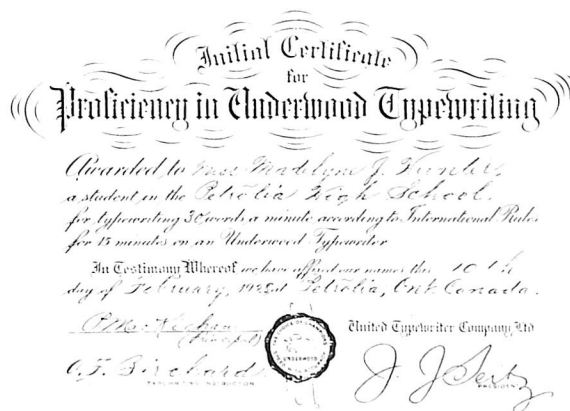 Initial Certificate
for
Proficiency in Underwood Typewriting
Awarded to Miss Madelyne J.
a student in the Petrolia High School.
for typewriting 30 words a minute according to International Rules
for 15 minutes on an Underwood Typewriter
In Testimony Whereof we have affixed our names this 10th
day of February, at Petrolia, Ont. Canada.
(Principal)
United Typewriter Company, Ltd
UNDERWOOD
J. J. Seitz
PRESIDENT